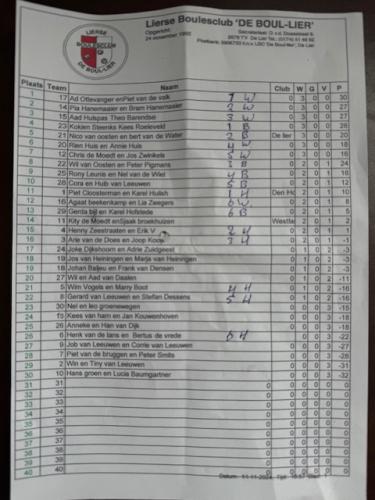 Lierse Boulesclub 'DE BOUL-LIER'
Opgericht
24 november 1992
LIERSE
BOULESCLUB
DE BOUL-LIER
Plaats Team Naam Club W G V P
1 17 Ad Ottevanger en Piet van de valk 1 W 0 3 0 0 30
2 14 Pia Hanemaaier en Bram Hanemaaier 2 W 0 3 0 0 27
3 15 Aad Huispas Theo Barendse 3 W 0 3 0 0 27
4 23 Kokien Steenks Kees Roeleveld 1 B 0 3 0 0 26
5 21 Nico van oosten en bert van de Water 2 B De lier 3 0 0 20
6 20 Rien Huis en Annie Huis 4 W 0 3 0 0 18
7 12 Chris de Moedt en Jos Zwinkels 5 W 0 3 0 0 16
8 22 Wil van Oosten en Peter Pigmans 3 B 0 2 0 1 24
9 25 Rony Leunis en Nel van de Wiel 4 B 0 2 0 1 16
10 28 Cora en Huib van Leeuwen 5 B 0 2 0 1 12
11 13 Piet Cloosterman en Karel Hulish 1 H Den Ho 2 0 1 10
12 16 Agaat beekenkamp en Lia Zwegers 6 W 0 2 0 1 8
13 29 Gerda bijl en Karel Hofstede 6 B 0 2 0 1 6
14 11 Kity de Moedt en Sjaak broekhuizen Westla 2 0 1 2
15 4 Henny Zeestraaten en Erik V 2 H 0 2 0 1 1
16 3 Arie van de Does en Joop Koole 3 H 0 2 0 1 -3
17 24 Joke Dijkshoorn en Adrie Zuidgeest 0 1 0 2 -3
18 19 Jos van Heiningen en Marja van Heiningen 0 1 0 2 -3
19 18 Johan Baljeu en Frank van Densen 0 1 0 2 -3
20 27 Wil en Aad van Daalen 0 1 0 2 -11
21 5 Wim Vogels en Marry Boot 4 H 0 1 0 2 -16
22 8 Gerard van Leeuwen en Stefan Dessens 5 H 0 1 0 2 -16
23 30 Nel en leo groenewegen 0 0 0 3 -15
24 f5 Kees van ham en Jan Kouwenhoven 0 0 0 3 -18
25 26 Anneke en Han van Dijk 0 0 0 3 -18
26 6 Henk van de lans en Bertus de vrede 6 H 0 0 0 3 -22
27 9 Job van Leeuwen en Corrie van Leeuwen 0 0 0 3 -27
28 7 Piet van de bruggen en Peter Smits 0 0 0 3 -28
29 2 Win en Tiny van Leeuwen 0 0 0 3 -31
30 10 Hans groen en Lucia Baumgartner 0 0 0 3 -32
31 31 0 0 0 0 0
32 32 0 0 0 0 0
33 33 0 0 0 0 0
34 34 0 0 0 0 0
35 35 0 0 0 0 0
36 36 0 0 0 0 0
37 37 0 0 0 0 0
38 38 0 0 0 0 0
39 39 0 0 0 0 0
40 40 0 0 0 0 0
Datum: 11-11-2024